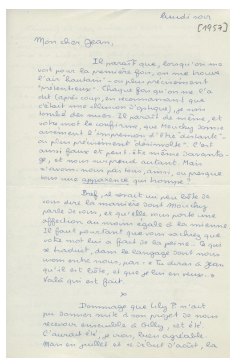 lundi soir
[1957]
Mon cher Jean,
Il paraît que, lorsqu'on me
voit pour la première fois, on me trouve
l'air "hautain" – ou plus précisément
"prétentieux". Chaque fois qu'on me l'a
dit (après coup, en reconnaissant que
c'était une illusion d'optique), je suis
tombé des nues. Il paraît de même, et
votre mot le confirme, que Mouchy donne
aisément l'impression d'être distante –
ou plus précisément désinvolte". C'est
aussi faux et peut-être même davanta-
ge, et nous surprend autant. Mais
n'avons-nous pas tous, ainsi, ou presque
tous une apparence qui trompe?
Bref, il serait un peu bête de
vous dire la manière dont Mouchy
parle de vous, et qu'elle vous porte une
affection au moins égale à la mienne.
Il faut pourtant que vous sachiez que
votre mot lui a fait de la peine. Ce que
se traduit, dans le langage dont nous
usons entre nous, par: "Tu diras à Jean
qu'il est bête, et que je lui en veux."
Voilà qui est fait.
Dommage que Lily P. n'ait
pu donner suite à un projet de nous
recevoir ensemble à
cet été.
C'aurait été, je crois, bien agréable
Mais en juillet et
début d'août, la